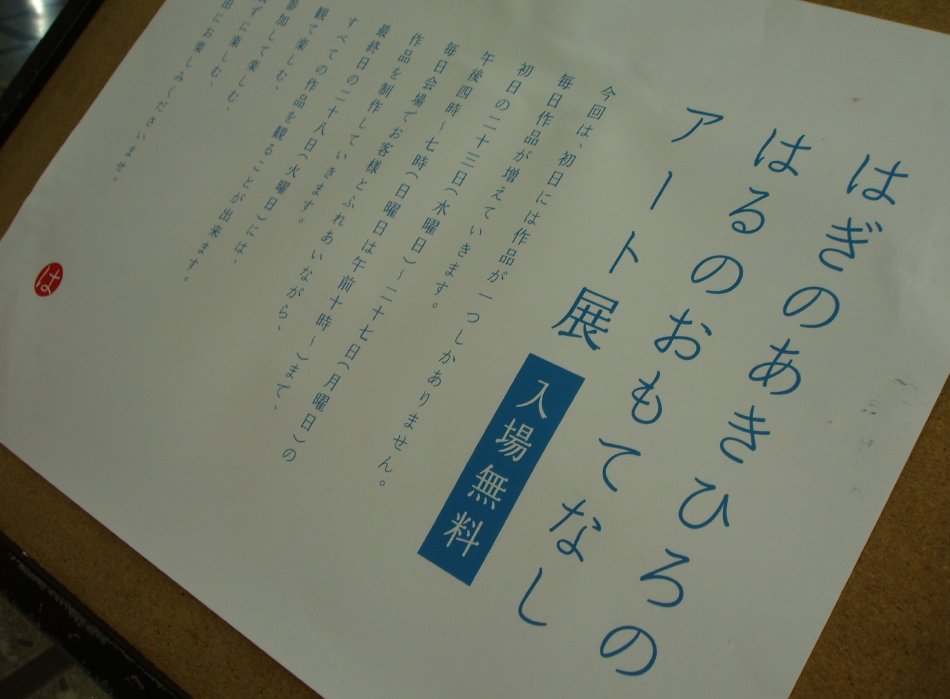 はぎのあきひろの
はるのおもてなし
アート展
入場無料
今回は、初日には作品が一つしかありません。
毎日作品が増えていきます。
初日の二十三日(水曜日)~二十七日(月曜日)の
午後四時~七時(日曜日は午前十時~)まで、
毎日会場でお客様とふれあいながら、
作品を制作していきます。
最終日の二十八日(火曜日)には、
すべての作品を観ることが出来ます。
観て楽しむ、
参加して楽しむ、
ずに楽しむ、
にお楽しみくださいませ。
は